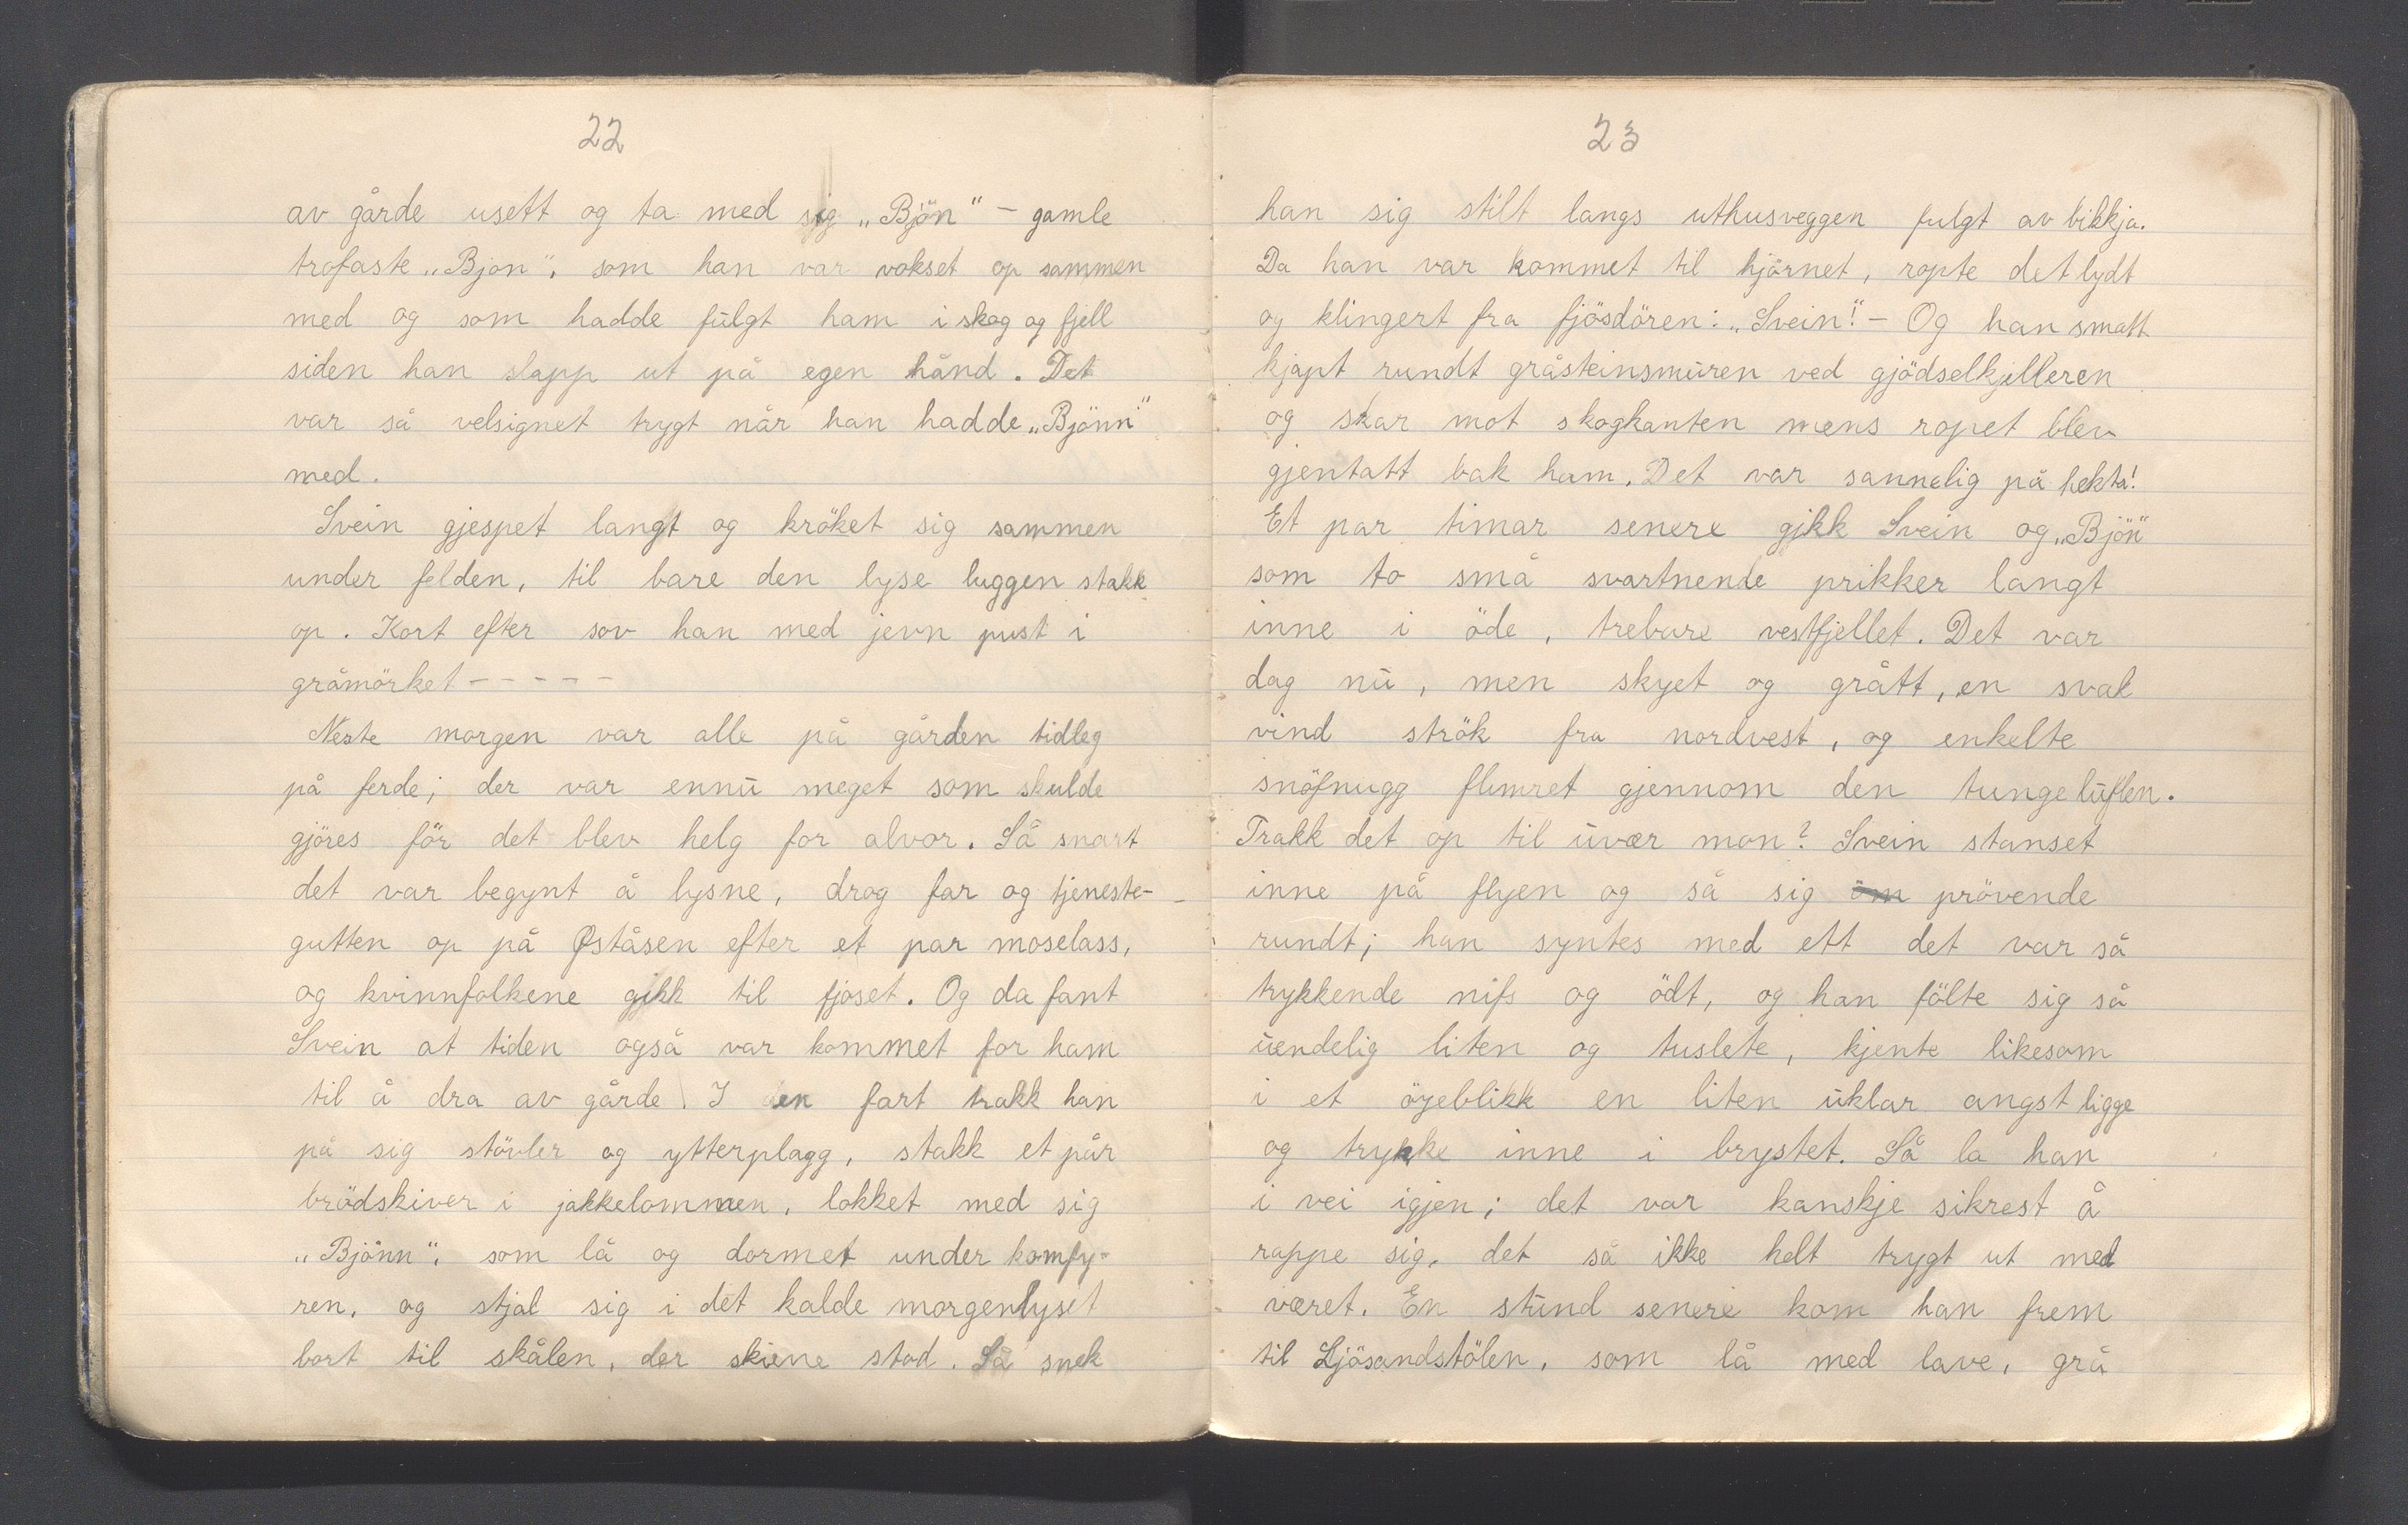 22
av gårde usett og ta med sig „Bjön" - gamle
trofaste „Bjon", som han var vokset op sammen
med og som hadde fülgt ham i skog og fjell
siden han slapp ut på egen hånd. Det
var så velsignet trygt når han hadde „Bjönn"
med.
Svein gjespet langt og kröket sig sammen
under felden, til bare den lyse luggen stakk
op. Kort efter sov han med jevn pust i
gråmörket - - - - -
Neste morgen var alle på gården tidleg
på ferde; der var ennü meget som skulde
gjöres för det blev helg for alvor. Så snart
det var begynt å lysne, drog far og tjeneste-
gutten op på Øståsen efter et par moselass,
og kvinnfolkene gikk til fjoset. Og da fant
Svein at tiden også var kommet for ham
til å dra av gårde. I en fart trakk han
på sig stövler og ytterplagg, stakk et pår
brödskiver i jakkelommen, lokket med sig
„Bjönn", som lå og dormet under komfy-
ren, og stjal sig i det kalde morgenlyset
bort til skålen, der skiene stod. Så snek
23
han sig stilt langs uthusveggen fulgt av bikkja.
Da han var kommet til hjörnet, ropte det lydt
og klingert fra fjösdören: „Svein!" - Og han smatt
kjapt rundt gråsteinsmüren ved gjödselkjelleren
og skar mot skogkanten mens ropet blev
gjentatt bak ham. Det var sannelig på hekta!
Et par timar senere gjkk Svein og „Bjön"
som to små svartnende prikker langt
inne i öde, trebare vestfjellet. Det var
dag nü, men skyet og grått, en svak
vind strök fra nordvest, og enkelte
snöfnugg flimret gjennom den tunge lüften.
Trakk det op til üvær mon? Svein stanset
inne på flyen og så sig prövende
rundt; han syntes med ett det var så
trykkende nifs og ödt, og han fölte sig så
üendelig liten og tuslete, kjente likesom
i et öyeblikk en liten üklar angst ligge
og trykke inne i brystet. Så la han
i vei igjen; det var kanskje sikrest å
rappe sig, det så ikke helt trygt ut med
været. En stünd senere kom han frem
til Ljösandstölen, som lå med lave, grå